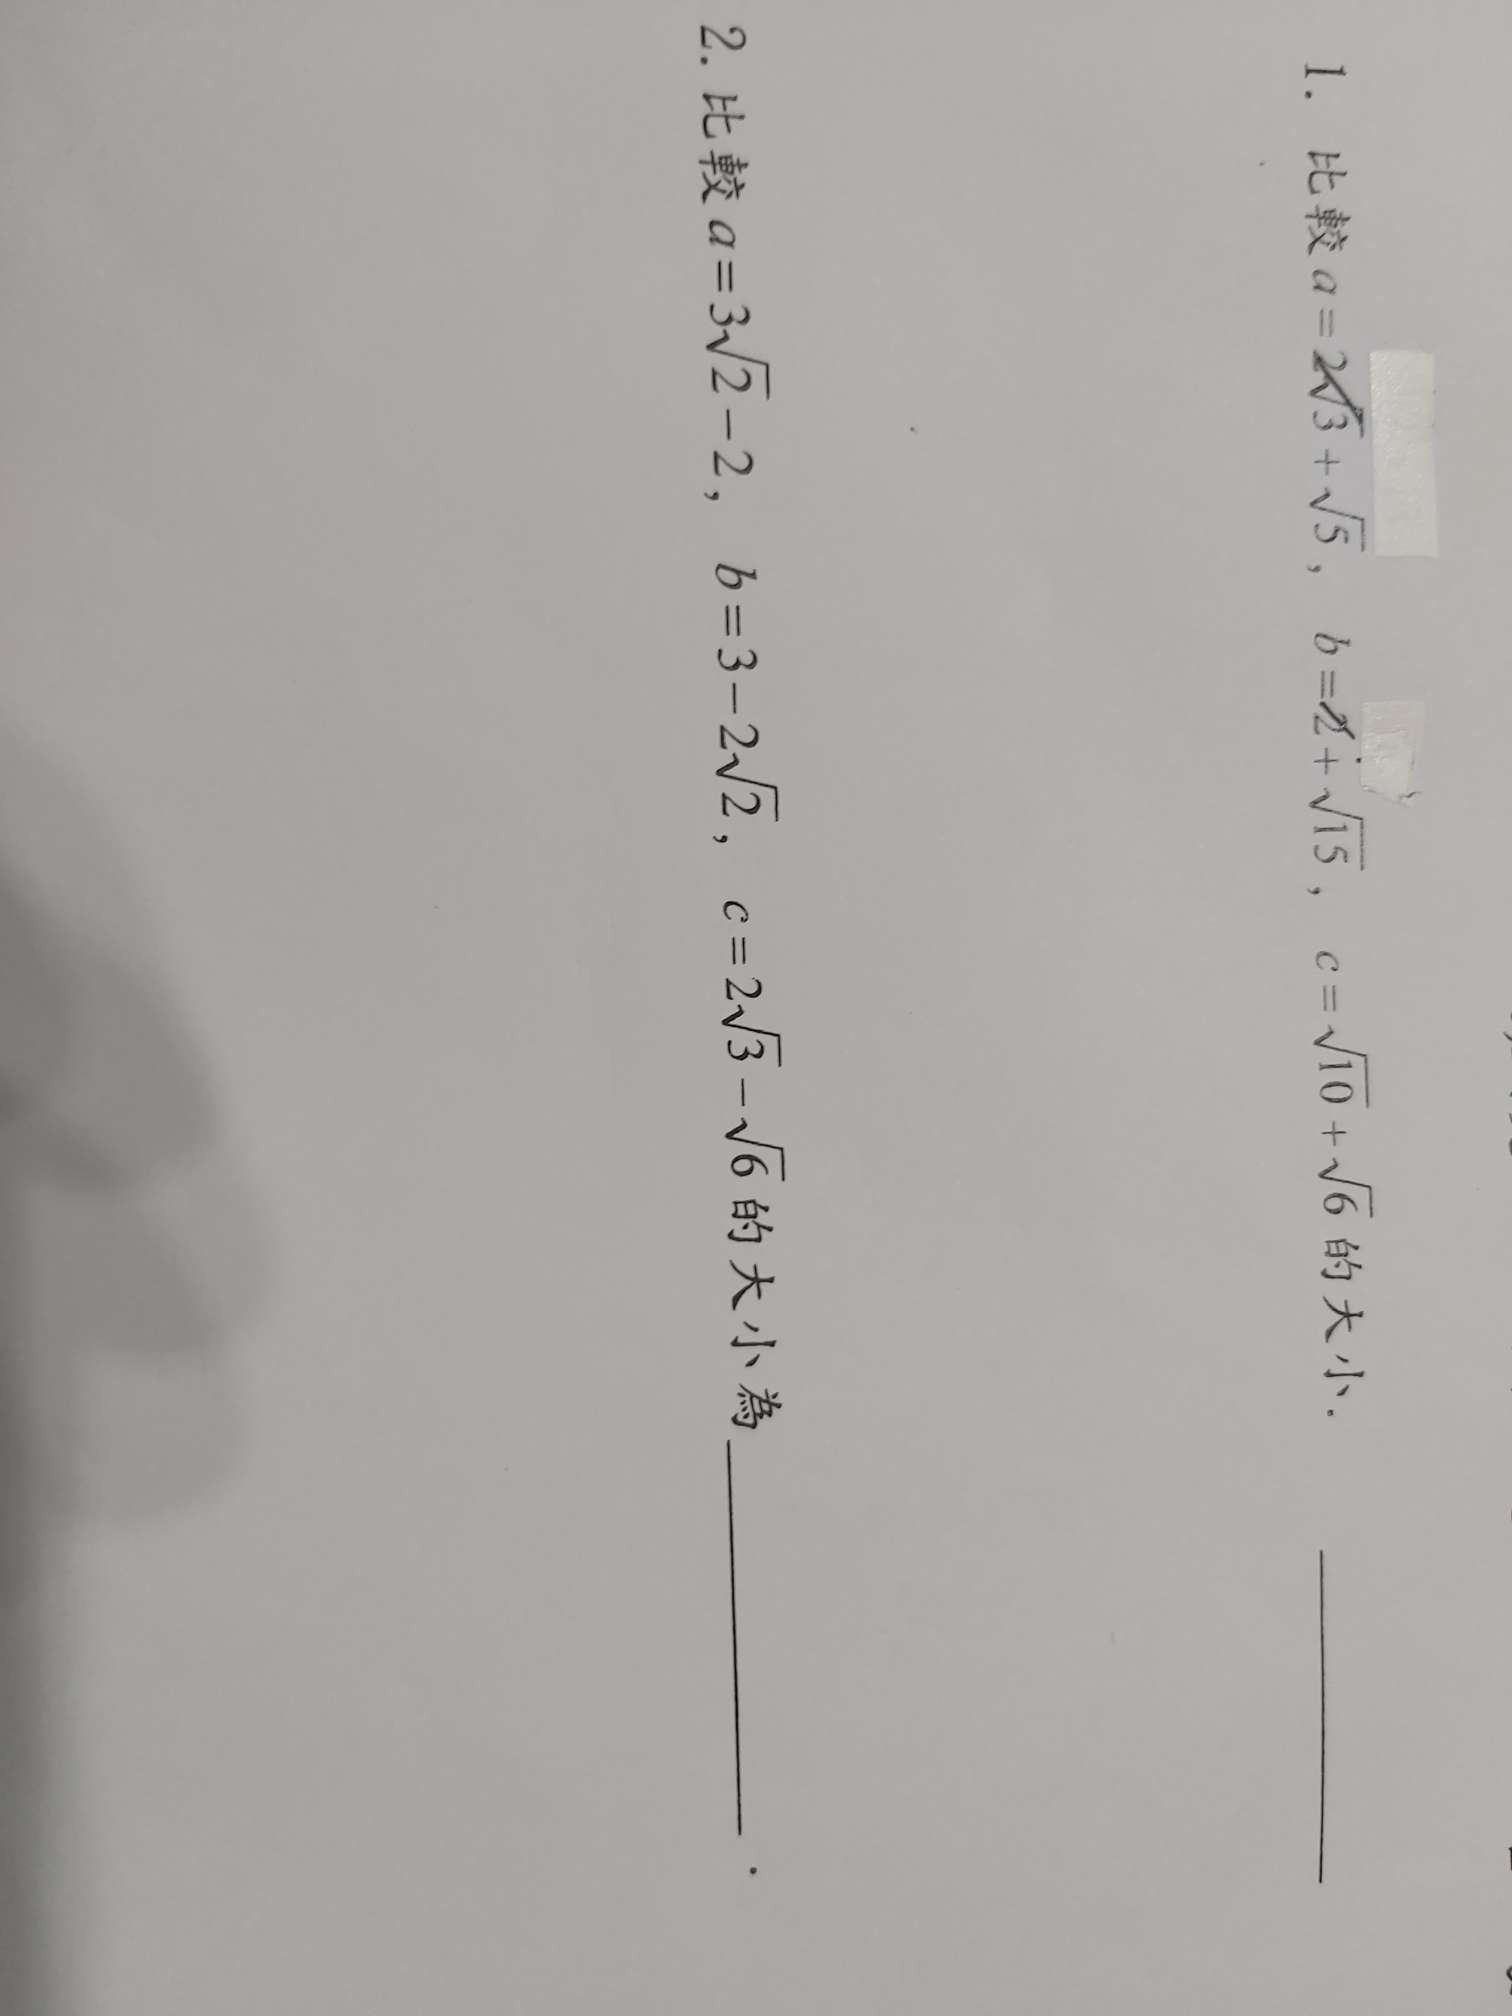 1. 比較 a=2√3+√5, b=2+√15, c=√10+√6 的大小. ________
2. 比較 a=3√2-2, b=3-2√2, c=2√3-√6 的大小為 ________.